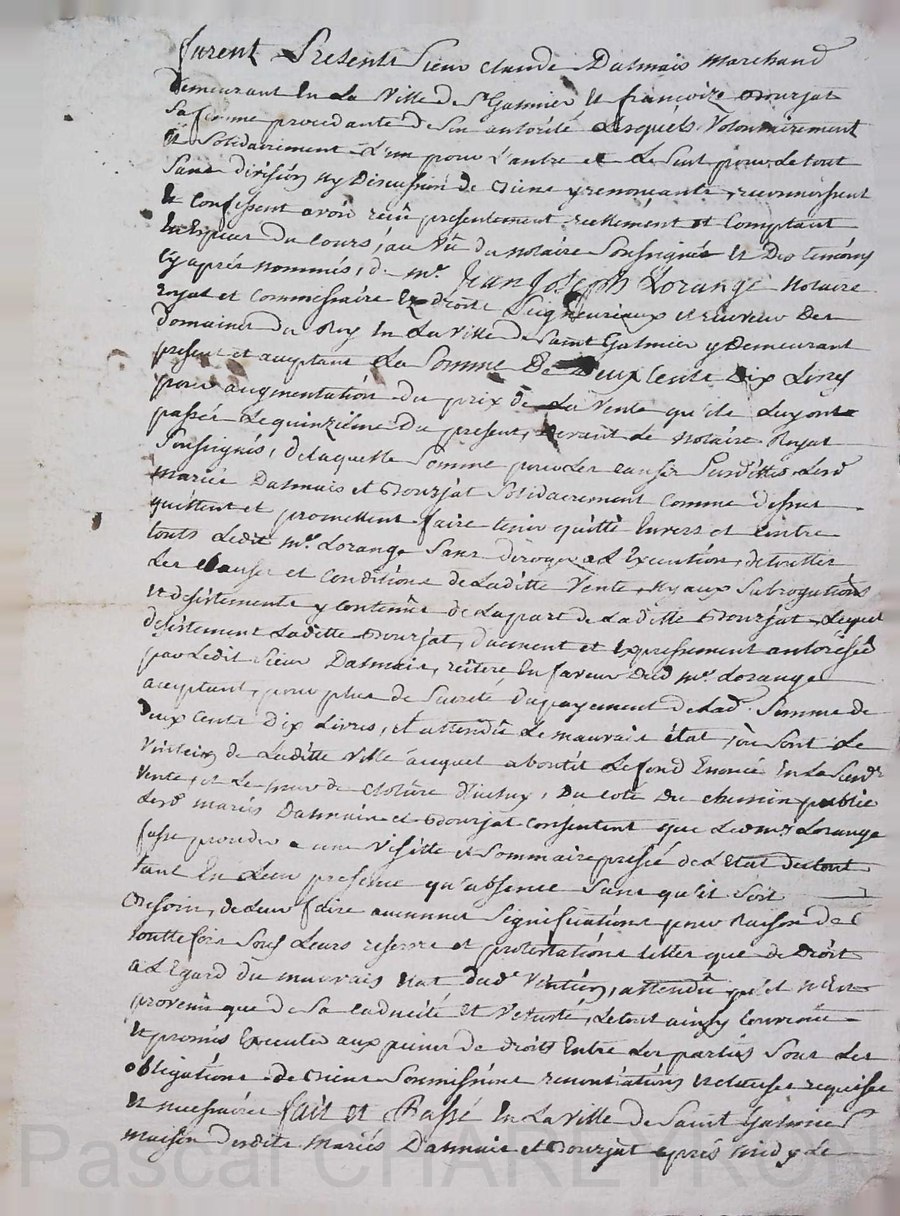 furent Presents Sieur claude Dalmais marchand
demeurant En La Ville de St Galmier Et francoize Bourjat
Sa femme procedante de Son autorité Lesquels Volontairement
Et Solidairement L'un pour L'autre et Le Seul pour Le tout
Sans division ny Discussion de Biens y renoncants, reconnoissent
Et Confessent avoir reçu presentement reellement et Comptant
En Especes du Cours, au Vû du notaire Soussigné Et Des temoins
Cy aprés nommés, de me. Jean Joseph Lorange notaire
royal et Commissaire En droits Seigneuriaux et receveur Des
domaines du Roy En La ville de Saint Galmier y Demeurant
present et acceptant La Somme De Deux Cents Dix Livres
pour augmentation du prix de La Vente qu'ils Luy ont
passée Le quinzième Du present, devant Le Notaire Royal
Soussigné, de laquelle Somme pour Les causes Susdittes Lesd.
mariés Dalmais et Bourjat Solidairement Comme dessus
quittent et promettent faire tenir quitte Envers et Contre
touts Ledit me. Lorange Sans déroger a L'Execution, de touttes
Les Clauses et Conditions de Laditte Vente, ny aux Subrogations
Et desistements y contenus de La part de La ditte Bourjat, Lequel
desistement Laditte Bourjat, duement et Expressement autorisée
par Ledit Sieur Dalmais, reitere En faveur Dud. me. Lorange
acceptant, pour plus de Sureté du payement de Lad. Somme de
Deux Cents Dix Livres, et attendu Le mauvais état, où Sont Le
Vintein de Laditte Ville auquel aboutit Le fond Enoncé En La Susd.
Vente, et Le mur de Cloture d'iceux, du coté du chemin public
Lesd. mariés Dalmais et Bourjat Consentent que Led. me. Lorange
fasse proceder a une Visitte et Sommaire prisée de L'Etat du tout
tant En Leur presence qu'absence Sans qu'il Soit
Besoin, de Leur faire aucunes Significations pour Raison de Ce
touttefois Sous Leurs reserves et protestations telles que de Droit
a L'Egard du mauvais Etat dud. Vintein, attendu qu'il n'Est
provenu que de Sa Caducité Et Vetusté, Le tout ainsy Convenu
Et promis Executer aux peines de droit Entre Les parties Sous Les
obligations de Biens Soumissions renontiations Et clauses requises
Et necessaires fait et Passé En La Ville de Saint Galmier
maison desdits Mariés Dalmais et Bourjat aprés midy Le
Pascal CHAREYRON